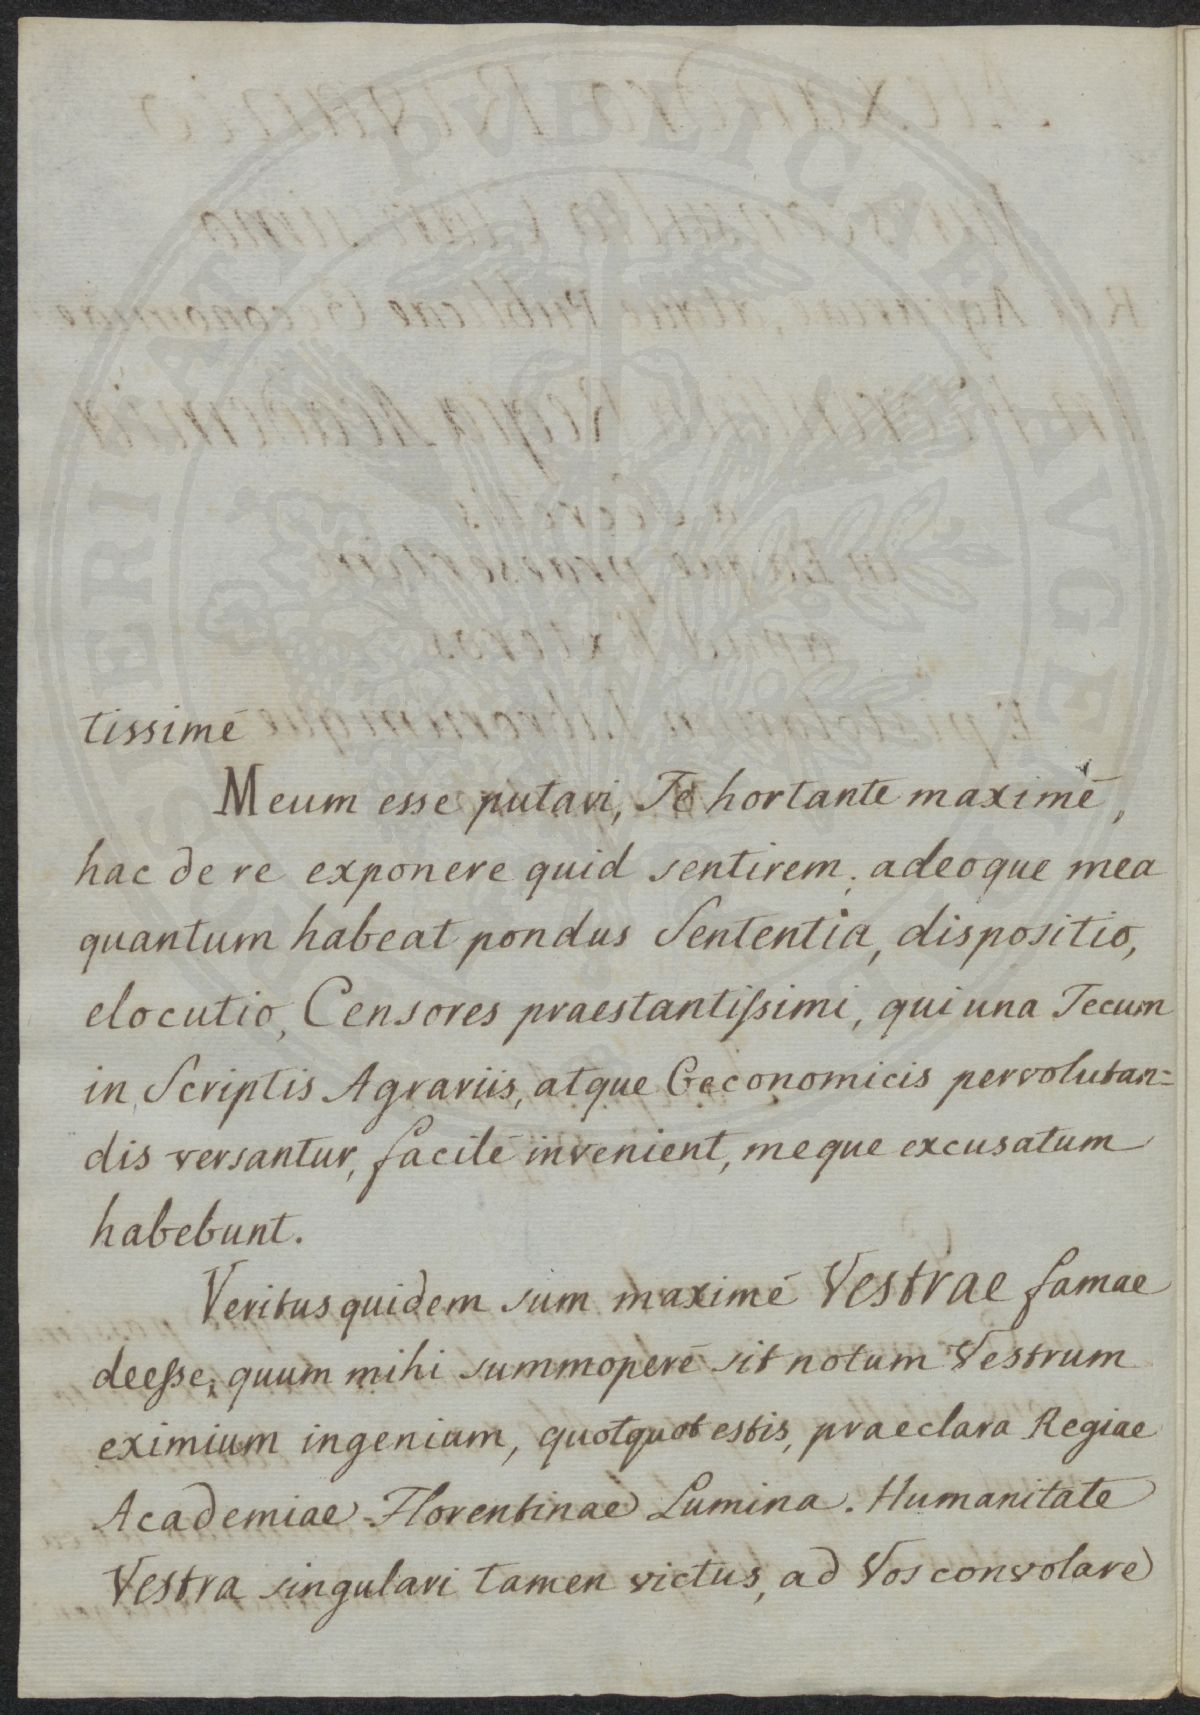 tissimé
Meum esse putavi, Te hortante maximé,
hac de re exponere quid sentirem; adeoque mea
quantum habeat pondus Sententia, dispositio,
elocutio, Censores praestantiſsimi, qui una Tecum
in Scriptis Agrariis, atque Oeconomicis pervolutan=
dis versantur, facilé invenient, meque excusatum
habebunt.
Veritus quidem sum maximé Vestrae famae
deeſse, quum mihi summoperé sit notum Vestrum
eximium ingenium, quotquot estis, praeclara Regiae
Academiae Florentinae Lumina. Humanitate
Vestra singulari tamen victus, ad Vos convolare